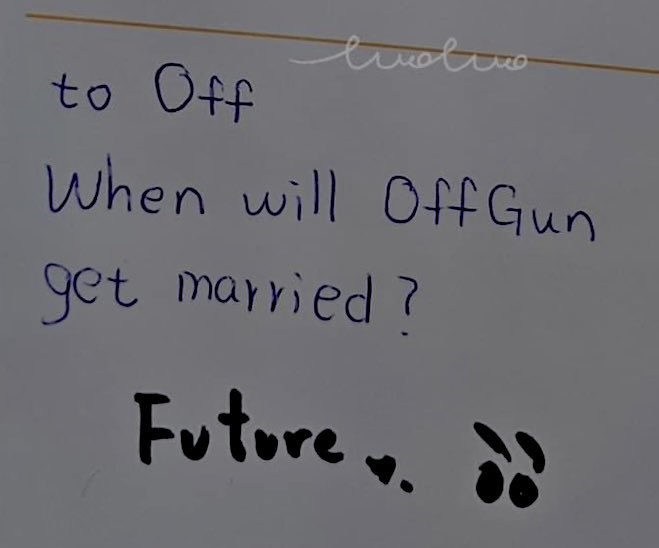 luoluo
to Off
When will OffGun
get married?
Future